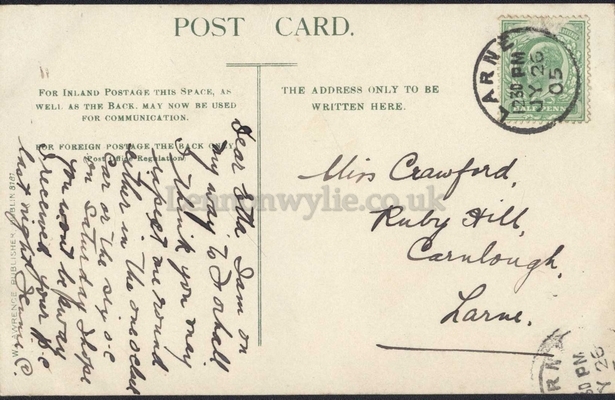 POST CARD.
FOR INLAND POSTAGE THIS SPACE, AS
WELL AS THE BACK, MAY NOW BE USED
FOR COMMUNICATION.
FOR FOREIGN POSTAGE, THE BACK ONLY.
(Post Office Regulation)
THE ADDRESS ONLY TO BE
WRITTEN HERE.
LARNE
2 30 PM
JY 26
05
HALFPENNY
Dear Etta I am on
my way to
I think you may
expect me round
either in the one o'clock
car or the six o.c
on Saturday I hope
you wont be away
I received your p.c
last night
Miss Crawford,
Ruby Hill,
Carnlough,
Larne.
W. LAWRENCE, PUBLISHER, DUBLIN
30 PM
Y 26
lennonwylie.co.uk